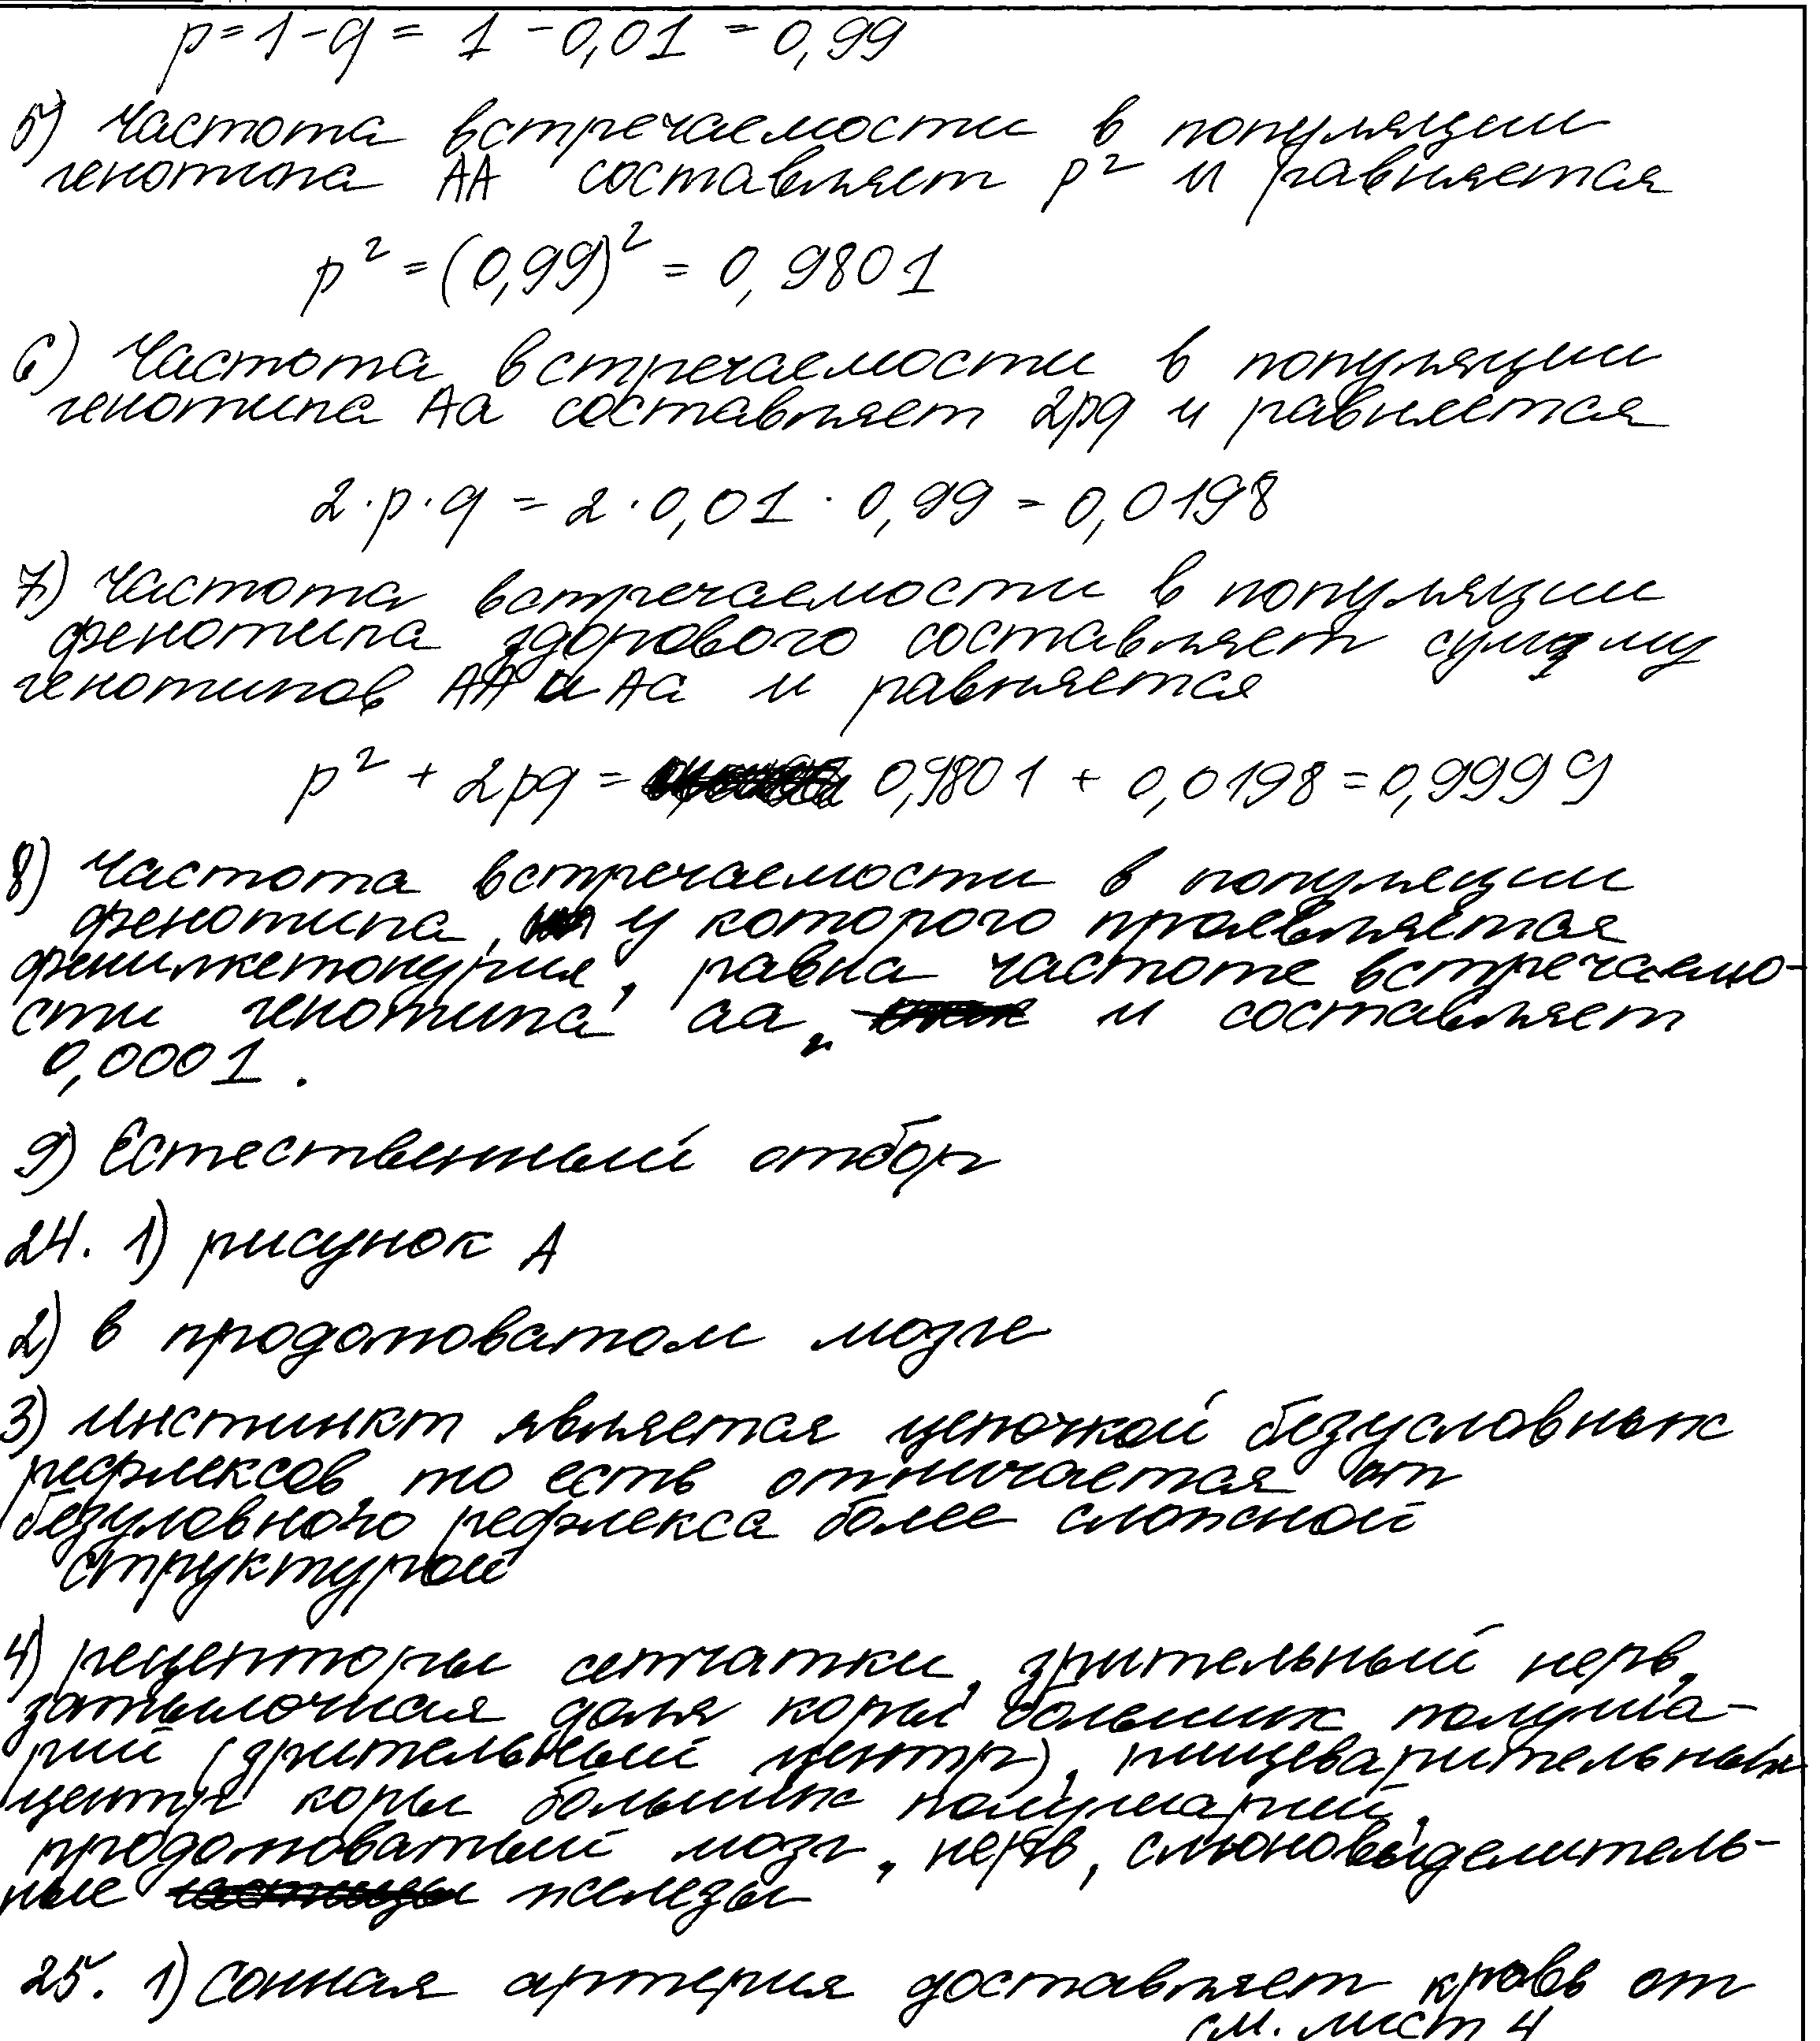 p = 1 - q = 1 - 0,01 = 0,99
5) Частота встречаемости в популяции
генотипа АА составляет p² и равняется
p² = (0,99)² = 0,9801
6) Частота встречаемости в популяции
генотипа Аа составляет 2pq и равняется
2·p·q = 2·0,01·0,99 = 0,0198
7) Частота встречаемости в популяции
фенотипа здорового составляет сумму
генотипов АА и Аа и равняется
p² + 2pq = 0,9801 + 0,0198 = 0,9999
8) Частота встречаемости в популяции
фенотипа, у которого проявляется
фенилкетонурия, равна частоте встречаемо-
сти генотипа аа, и составляет
0,0001.
9) Естественный отбор
24. 1) рисунок А
2) в продолговатом мозге
3) Инстинкт является цепочкой безусловных
рефлексов, то есть отличается от
безуловного рефлекса более сложной
структурой
4) рецепторы сетчатки, зрительный нерв,
затылочная доля коры больших полуша-
рий (зрительный центр), пищеварительный
центр коры больших полушарий,
продолговатый мозг, нерв, слюновыделитель-
ные железы
25. 1) Сонная артерия доставляет кровь от
см. лист 4